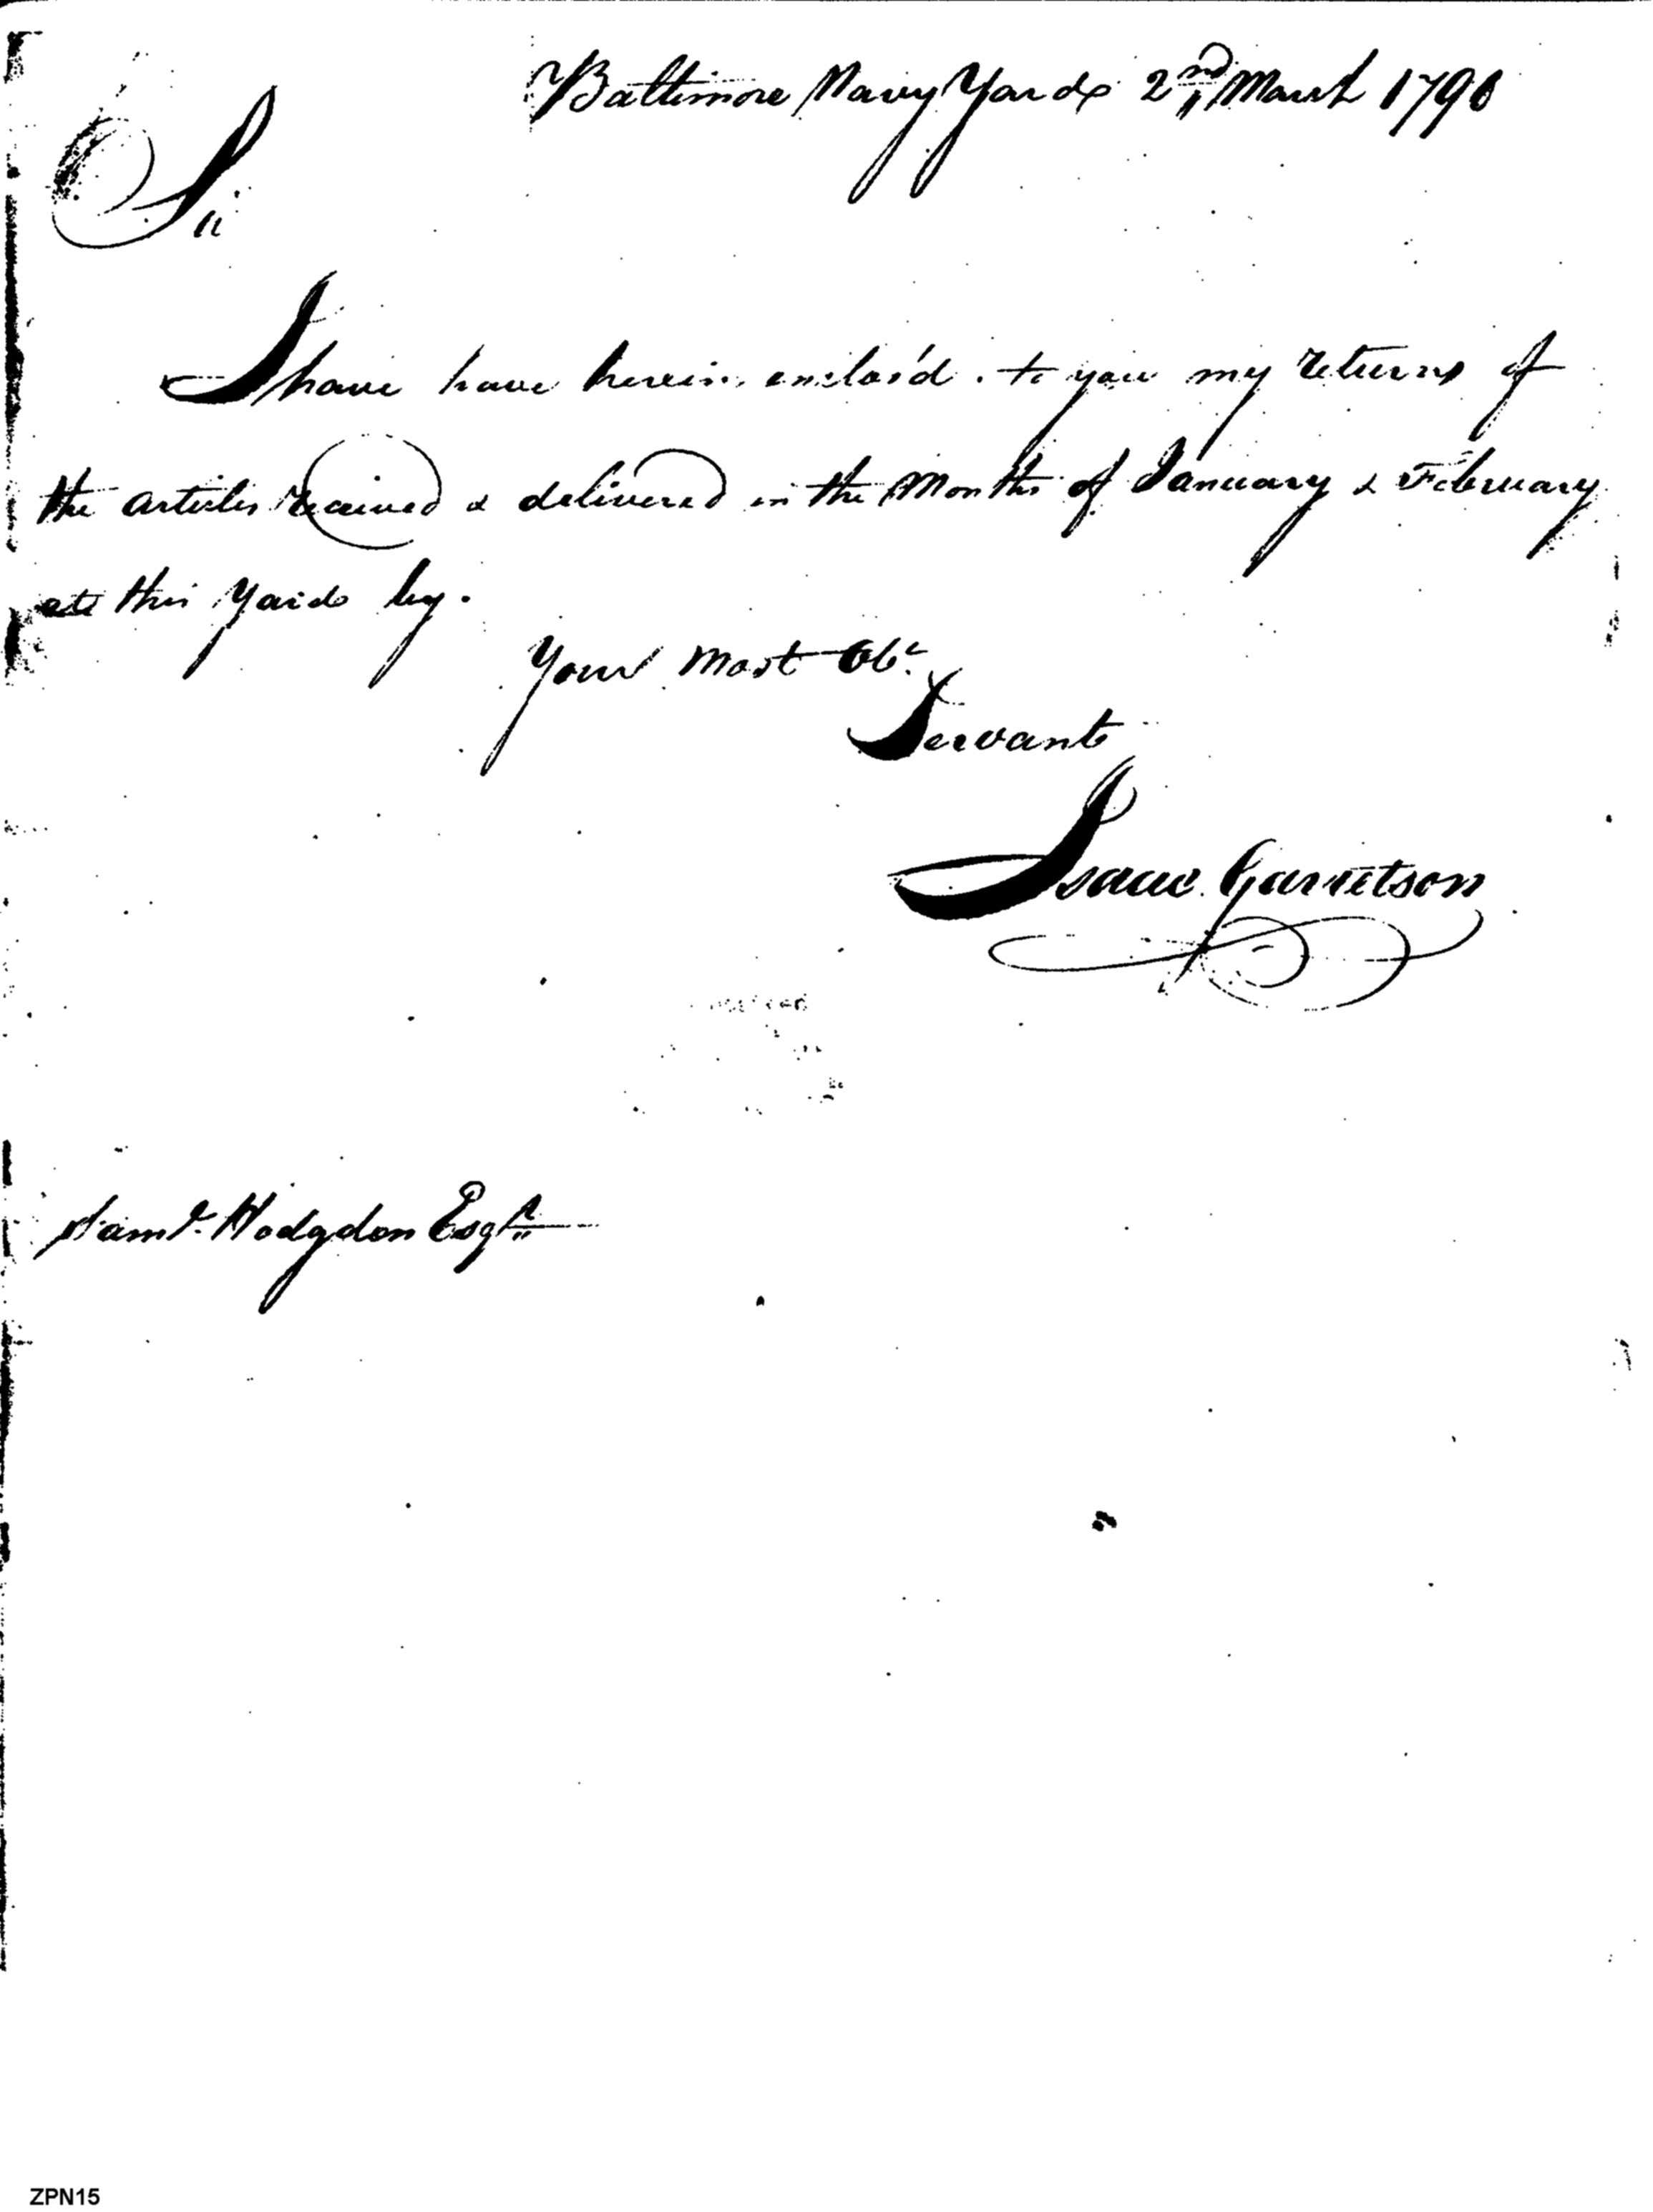 Baltimore Navy Yard 2nd March 1798
Sir
I have have herein enclos'd to you my returns of
the articles received & delivered in the Months of January & February
at this Yard by.
Your Most Obt
Servant
Isaac Garretson
Saml. Hodgdon Esqr.
ZPN15